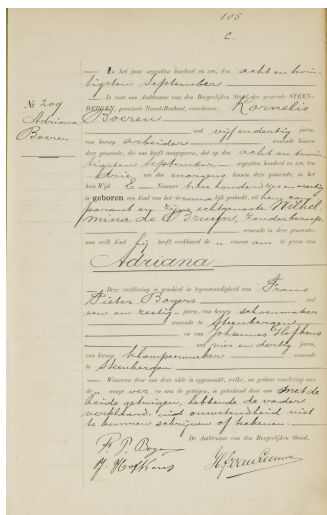 105
C.
No 209
Adriana
Boeren
In het jaar negentien honderd en een, den acht en twin-
tigsten September
is voor ons Ambtenaar van den Burgerlijken Stand der gemeente STEEN-
BERGEN, provincie Noord-Brabant, verschenen: Kornelis
Boeren
oud vijf en dertig jaren,
van beroep arbeider wonende binnen
deze gemeente, die ons heeft aangegeven, dat op den acht en twin-
tigsten September negentien honderd en een ten
drie ure des morgens binnen deze gemeente, in het
huis Wijk E Nummer twee honderd en veertig
is geboren een kind van het vrouwelijk geslacht, uit hem com-
parant en zijne echtgenoote Wilhel-
mina de Bruijn, zonder beroep,
wonende in deze gemeente,
aan welk kind hij heeft verklaard de voornaam te geven van
Adriana
Deze verklaring is geschied in tegenwoordigheid van Frans
Pieter Bogers oud
een en zestig jaren, van beroep schoenmaker
wonende te Steenbergen
en van Johannes Hofhens
oud vier en dertig jaren,
van beroep klompenmaker wonende
te Steenbergen
Waarvan door ons deze akte is opgemaakt, welke, na gedane voorlezing aan
de
beide getuigen, hebbende de vader
verklaard, uit onwetendheid niet
te kunnen schrijven of teekenen.
De Ambtenaar van den Burgerlijken Stand,
F. P. Bogers
J. Hofhens